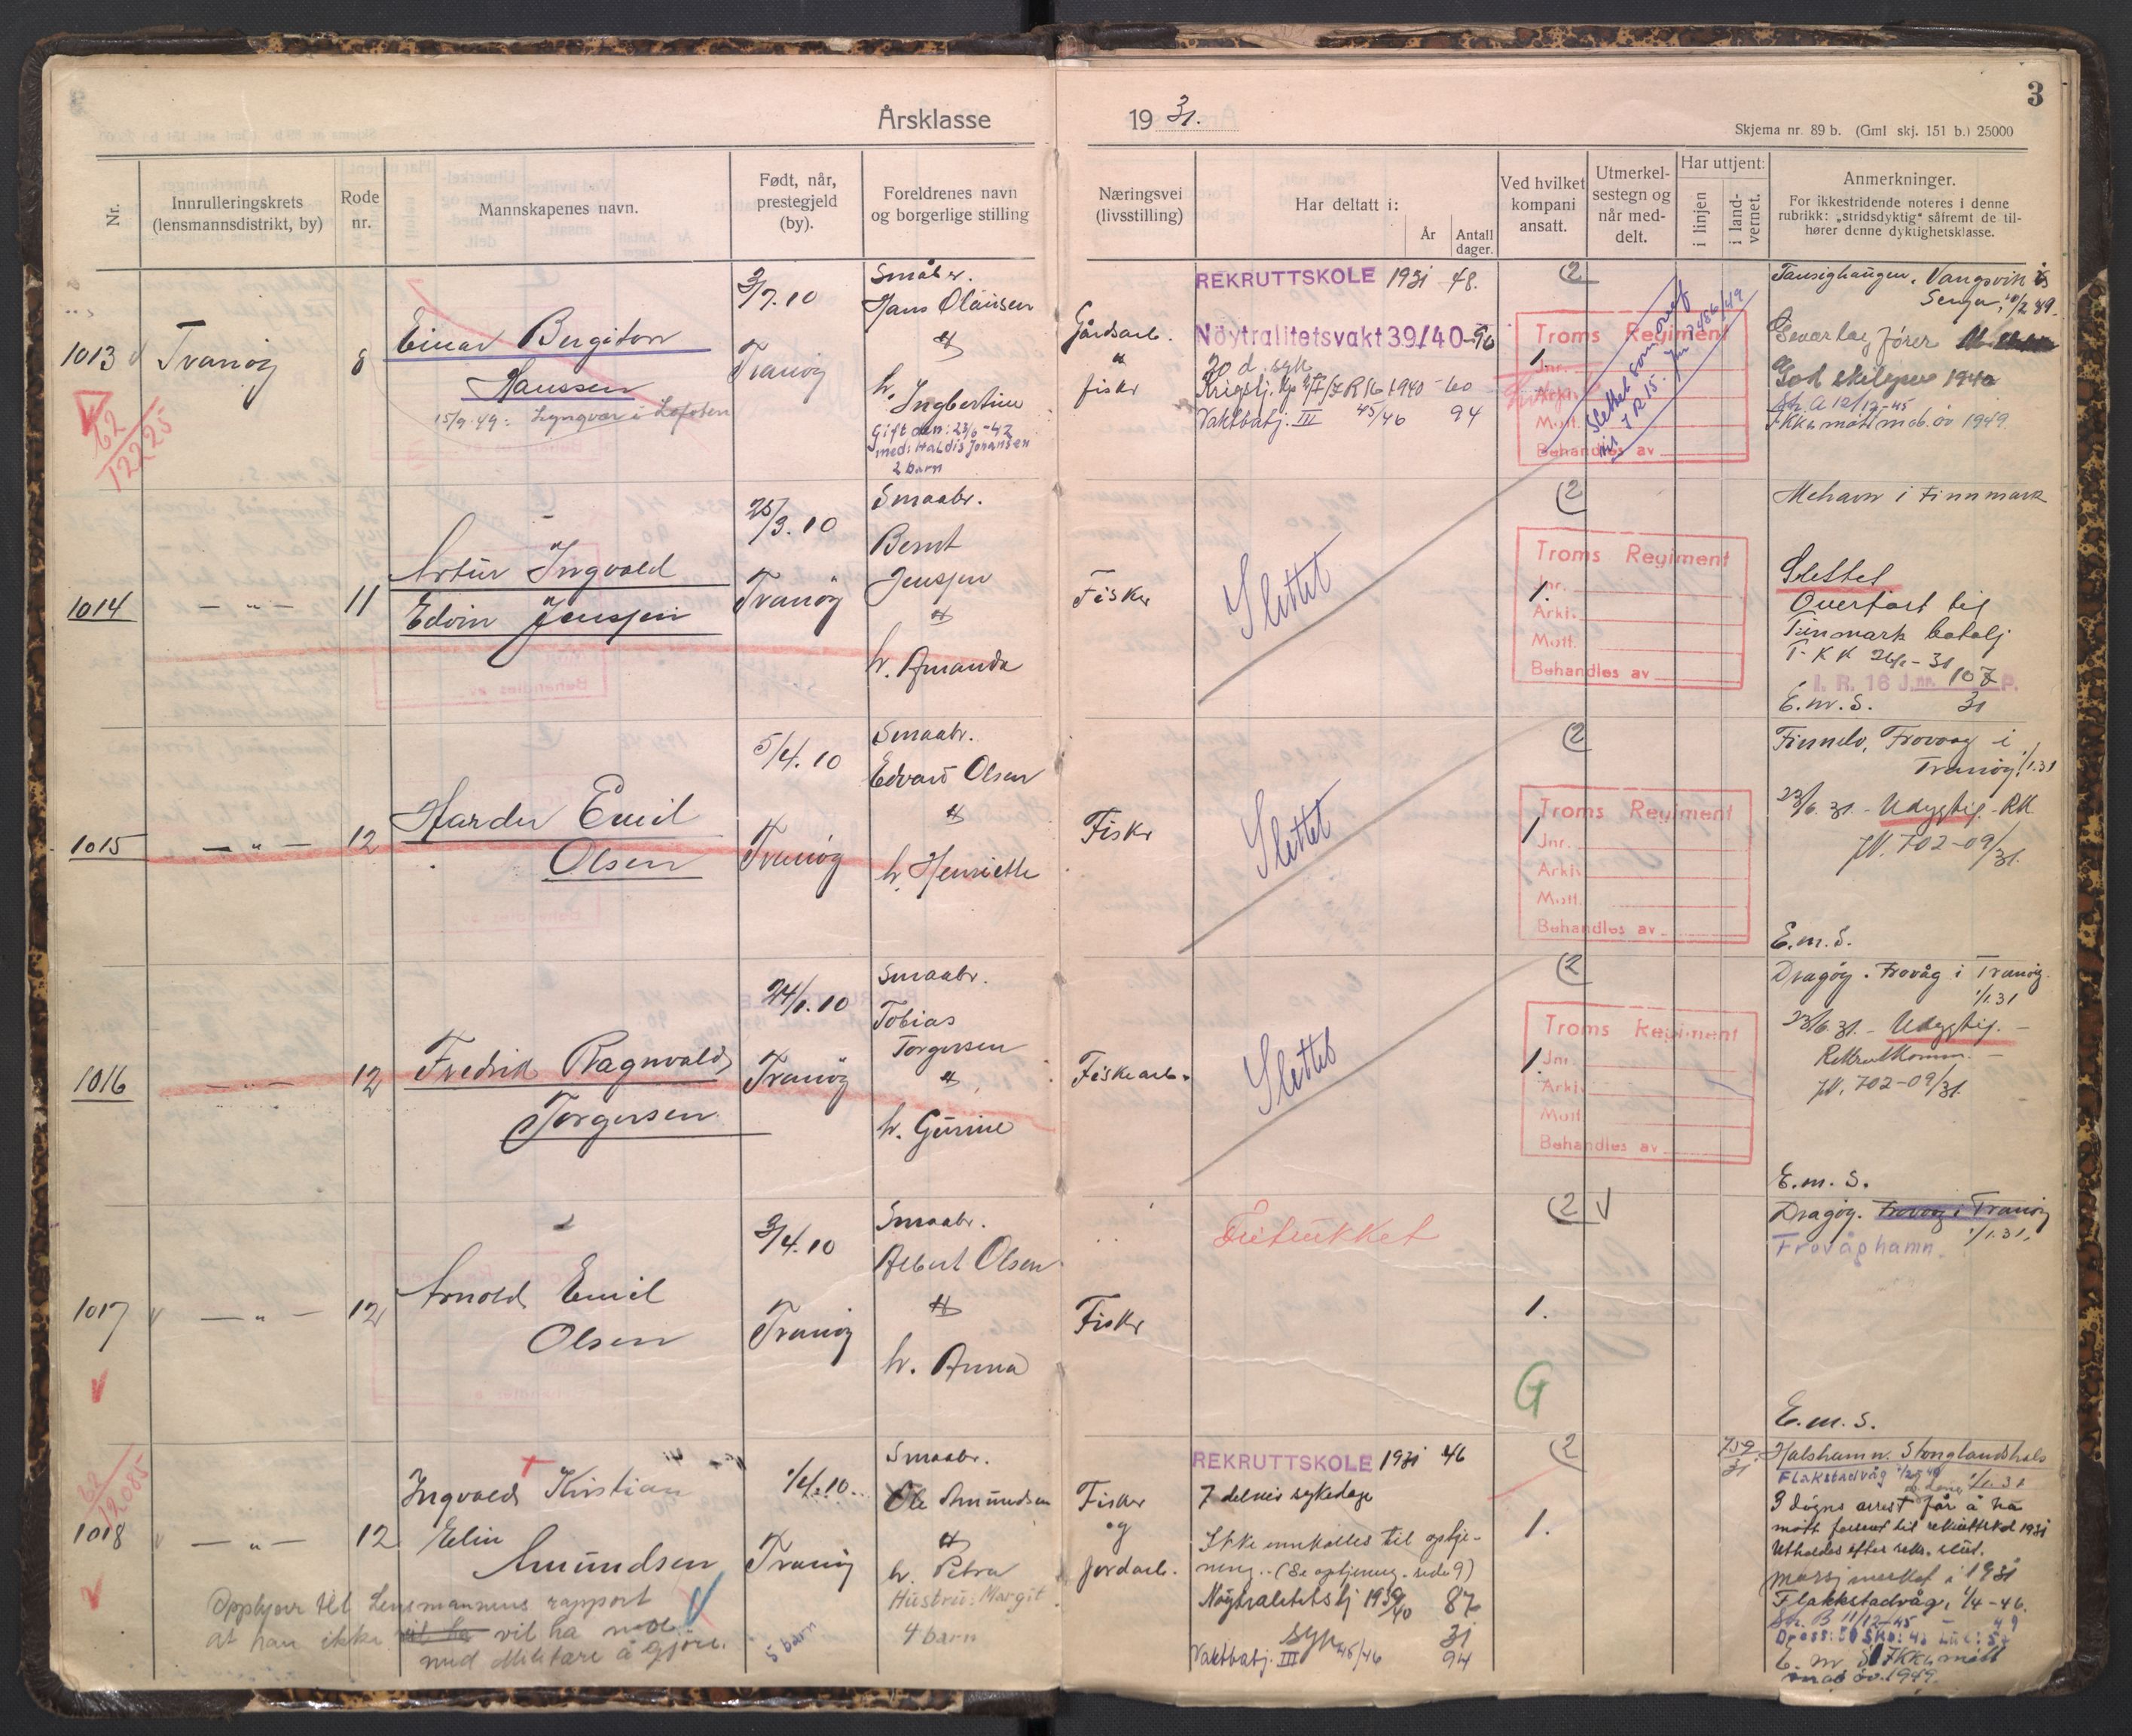 Årsklasse
1931.
3
Skjema nr. 89 b. (Gml skj. 151 b.) 25000
Nr.
Innrulleringskrets
(lensmannsdistrikt, by)
Rode
nr.
Mannskapenes navn.
Født, når,
prestegjeld
(by).
Foreldrenes navn
og borgerlige stilling
Næringsvei
(livsstilling)
Har deltatt i:
År
Antall
dager.
Ved hvilket
kompani
ansatt.
Utmerkel-
sestegn og
når med-
delt.
Har uttjent:
i linjen
i land-
vernet.
Anmerkninger.
For ikkestridende noteres i denne
rubrikk: „stridsdyktig" såfremt de til-
hører denne dyktighetsklasse.
1013
62
12225
Tranöy
8
Einar Bergiton
Hanssen
15/9-49: Lyngvær i Lofoten
3/7.10
Tranöy
Småbr.
Hans Olaüsen
h. Ingbertine
Gift den: 23/6-42
med: Haldis Johansen
2 barn
Gårdsarb.
fisker
REKRUTTSKOLE 1931 48.
Nöytralitetsvakt 39/40-96
20 d. syk
Krigstj. 1940-60
Vaktbatj. III 45/46 94
2
1.
Troms Regiment
Jnr.
Arkiv.
Mott.
Behandles av
Vangsvik
Senja,
God skiløper 1940
Sh. A 12/12-45
mob. öv 1949.
1014
— " —
11
Artür Ingvald
Edvin Jenssen
25/3.10
Tranöy
Smaabr.
Bernt
Jenssen
h. Amanda
Fisker
Slettet
2
1.
Troms Regiment
Jnr.
Arkiv.
Mott.
Behandles av
Mehavn i Finnmark
Slettet
Overført til
Finmark batalj
I. R. 16 Jnr. 107 P.
E.m.S. 31
1015
— " —
12
Harder Emil
Olsen
5/4.10
Tranöy
Smaabr.
Edvard Olsen
h. Henriette
Fisker
Slettet
2
1
Troms Regiment
Jnr.
Arkiv.
Mott.
Behandles av
Frovaag i
Tranöy 1/1.31
23/6.31.- Udygtig.- RK
JW. 702-09/31.
E.m.S.
1016
— " —
12
Fredrik Ragnvald
Torgersen
24/1.10
Tranöy
Smaabr.
Tobias
Torgersen
h. Gürine
Fiskearb.
Slettet
2
1.
Troms Regiment
Jnr.
Arkiv
Mott
Behandles av
Dragöy. Frovåg i Tranöy.
1/1.31
23/6.31.- Udygtig.-
Rekrutkomm.-
JW. 702-09/31.
E.m.S.
1017
— " —
12
Arnold Emil
Olsen
3/4.10
Tranöy
Smaabr.
Albert Olsen
h. Anna
Fisker
2
1.
G
Dragöy. Frovaag i Tranöy
1/1.31,
Frovåghamn.
E.m.S.
62
12085
1018
— " —
12
Ingvald Kristian
Elin
Amündsen
1/4.10.
Tranöy
Smaabr.
Ole Amündsen
h. Petra
Hustru: Margit
4 barn
5 barn
Opphevr til Lensmannens rapport
at han ikke vil ha vil ha med
med Militære å gjöre.
Fisker
og
jordarb.
REKRUTTSKOLE 1931 46
7 delvis sykedage
Ikke innkalles til optje-
ning.. (Se optjening. side 9)
Nøytralitetstj 1939/40 87
syk 31
Vaktbatj. III 45/46 94
2
1.
759
31
Halshamn. Stonglandshals
Flakstadvåg
3 døgns arrest for å ha
møtt forsent til rekruttskol 1931
Utholdes efter rekr. slut.
Marsjmerket i 1931
Flakkstadvåg, 1/4-46.
Sh. B 11/12-45
mob öv. 1949.